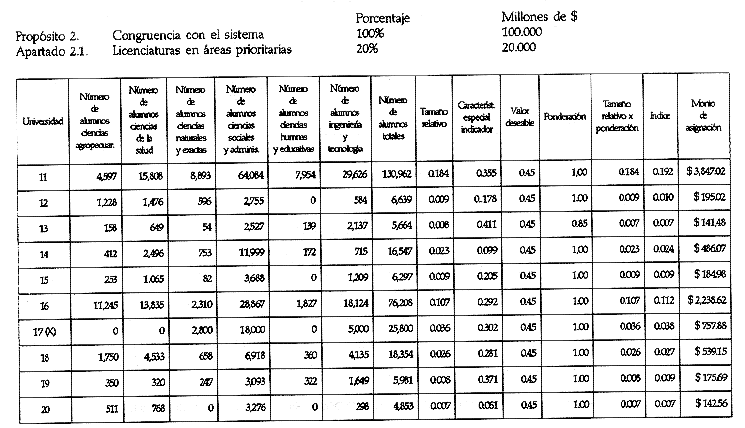 Porcentaje Millones de $
Propósito 2. Congruencia con el sistema 100% 100.000
Apartado 2.1. Licenciaturas en áreas prioritarias 20% 20.000
Universidad Número de alumnos ciencias agropecuar. Número de alumnos ciencias de la salud Número de alumnos ciencias naturales y exactas Número de alumnos ciencias sociales y adminis. Número de alumnos ciencias humnas y educativas Número de alumnos ingeniería y tecnología Número de alumnos totales Tamaño relativo Característ. especial indicador Valor deseable Ponderación Tamaño relativo x ponderación Indice Monto de asignación
11 4,597 15,808 8,893 64,084 7,954 29,626 130,962 0.184 0.355 0.45 1,00 0.184 0.192 $3,847.02
12 1,228 1,476 596 2,755 0 584 6,639 0.009 0.178 0.45 1.00 0.009 0.010 $195.02
13 158 649 54 2,527 139 2,137 5,664 0.008 0.411 0.45 0.85 0.007 0.007 $141,48
14 412 2,496 753 11,999 172 715 16,547 0.023 0.099 0.45 1,00 0.023 0.024 $486.07
15 253 1.065 82 3,688 0 1,209 6,297 0.009 0.205 0.45 1.00 0.009 0.009 $184.98
16 11,245 13,835 2,310 28,867 1,827 18,124 76,208 0.107 0.292 0.45 1.00 0.107 0.112 $2,238.62
17 (X) 0 0 2,800 18,000 0 5,000 25,800 0.036 0.302 0.45 1.00 0.036 0.038 $757.88
18 1,750 4,533 658 6,918 360 4,135 18,354 0.026 0.281 0.45 1.00 0.026 0.027 $539.15
19 350 320 247 3,093 322 1,649 5,981 0.008 0.371 0.45 1.00 0.008 0.009 $175.69
20 511 768 0 3,276 0 298 4,853 0.007 0.061 0.45 1.00 0.007 0.007 $142.56